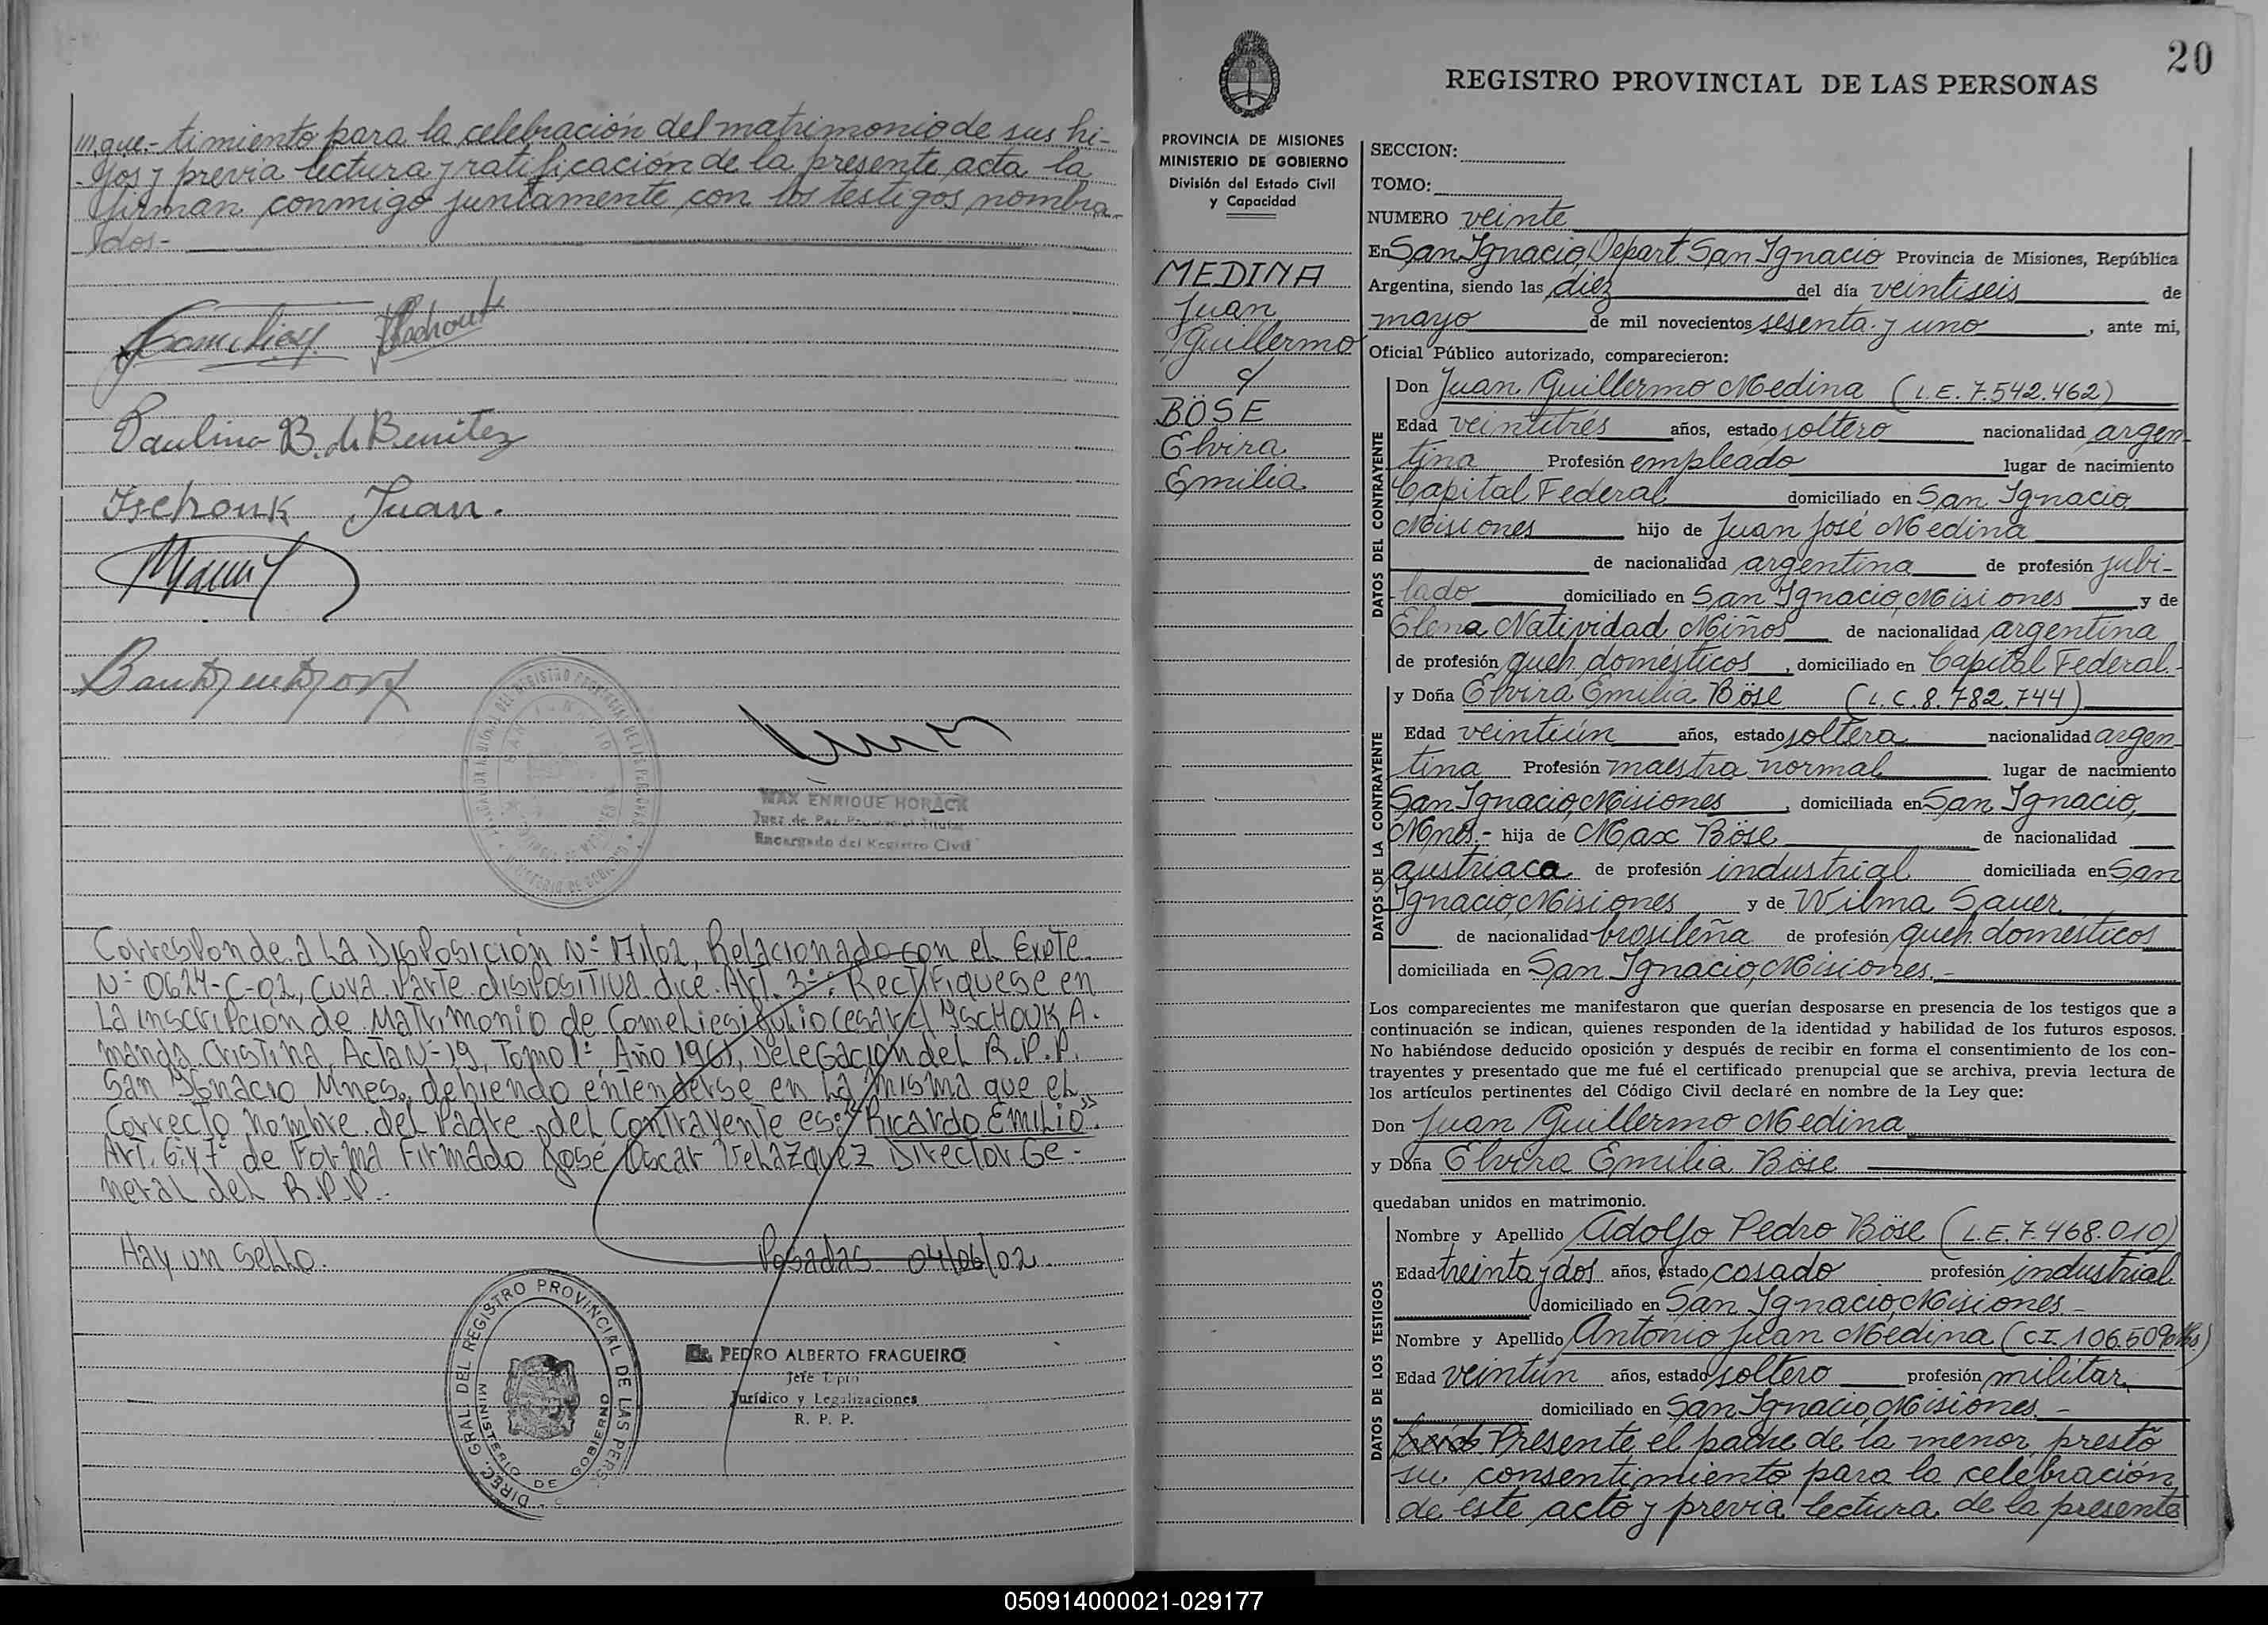 III que.- timiento para la celebración del matrimonio de sus hi-
-jos y previa lectura y ratificacion de la presente acta la
firman conmigo juntamente con los testigos nombra-
dos.-
Paulina B. de Benitez
Ischouk Juan.
MAX ENRIQUE HORACK
Juez de Paz
Encargado del Registro Civil
Corresponde a La Disposición N° 171/02, Relacionado con el Expte.
N° 0624-C-02, cuya Parte dispositiva dice: Art. 3°: Rectifiquese en
La inscripción de Matrimonio de Comeliesi Julio Cesar c/ YSCHOUK A-
manda Cristina, Acta N° 19, Tomo 1° Año 1961, Delegación del R.P.P.
San Ignacio Mnes, debiendo entenderse en la misma que el
Correcto nombre del Padre del Contrayente es: "Ricardo Emilio".
Art. 6 y 7° de Forma Firmado José Oscar Velazquez Director Ge-
neral del R.P.P.
Hay un sello. Posadas 04/06/02
DIREC. GRAL. DEL REGISTRO PROVINCIAL DE LAS PERS.
MINISTERIO DE GOBIERNO
Dr. PEDRO ALBERTO FRAGUEIRO
Jefe Dpto
Jurídico y Legalizaciones
R. P. P.
20
REGISTRO PROVINCIAL DE LAS PERSONAS
PROVINCIA DE MISIONES
MINISTERIO DE GOBIERNO
División del Estado Civil
y Capacidad
MEDINA
Juan
Guillermo
c/
BÖSE
Elvira
Emilia
SECCION:
TOMO:
NUMERO veinte
En San Ignacio, Depart. San Ignacio Provincia de Misiones, República
Argentina, siendo las diez del día veintiseis de
mayo de mil novecientos sesenta y uno, ante mi,
Oficial Público autorizado, comparecieron:
DATOS DEL CONTRAYENTE
Don Juan Guillermo Medina (L.E. 7.542.462)
Edad veintitrés años, estado soltero nacionalidad argen-
tina Profesión empleado lugar de nacimiento
Capital Federal domiciliado en San Ignacio
Misiones hijo de Juan José Medina
de nacionalidad argentina de profesión jubi-
lado domiciliado en San Ignacio, Misiones y de
Elena Natividad Miños de nacionalidad argentina
de profesión queh. domésticos, domiciliado en Capital Federal.-
DATOS DE LA CONTRAYENTE
y Doña Elvira Emilia Böse (L.C. 8.782.744)
Edad veintiún años, estado soltera nacionalidad argen
tina Profesión maestra normal lugar de nacimiento
San Ignacio, Misiones, domiciliada en San Ignacio,
Mnes.- hija de Max Böse de nacionalidad
austriaca de profesión industrial domiciliada en San
Ignacio, Misiones y de Wilma Sauer
de nacionalidad brasileña de profesión queh. domésticos
domiciliada en San Ignacio, Misiones.-
Los comparecientes me manifestaron que querían desposarse en presencia de los testigos que a
continuación se indican, quienes responden de la identidad y habilidad de los futuros esposos.
No habiéndose deducido oposición y después de recibir en forma el consentimiento de los con-
trayentes y presentado que me fué el certificado prenupcial que se archiva, previa lectura de
los artículos pertinentes del Código Civil declaré en nombre de la Ley que:
Don Juan Guillermo Medina
y Doña Elvira Emilia Böse
quedaban unidos en matrimonio.
DATOS DE LOS TESTIGOS
Nombre y Apellido Adolfo Pedro Böse (L.E. 7.468.010)
Edad treinta y dos años, estado casado profesión industrial
domiciliado en San Ignacio, Misiones -
Nombre y Apellido Antonio Juan Medina (C.I. 106.509
Edad veintún años, estado soltero profesión militar
domiciliado en San Ignacio, Misiones. -
Presente el padre de la menor, prestó
su consentimiento para la celebración
de este acto y previa lectura de la presente
050914000021-029177